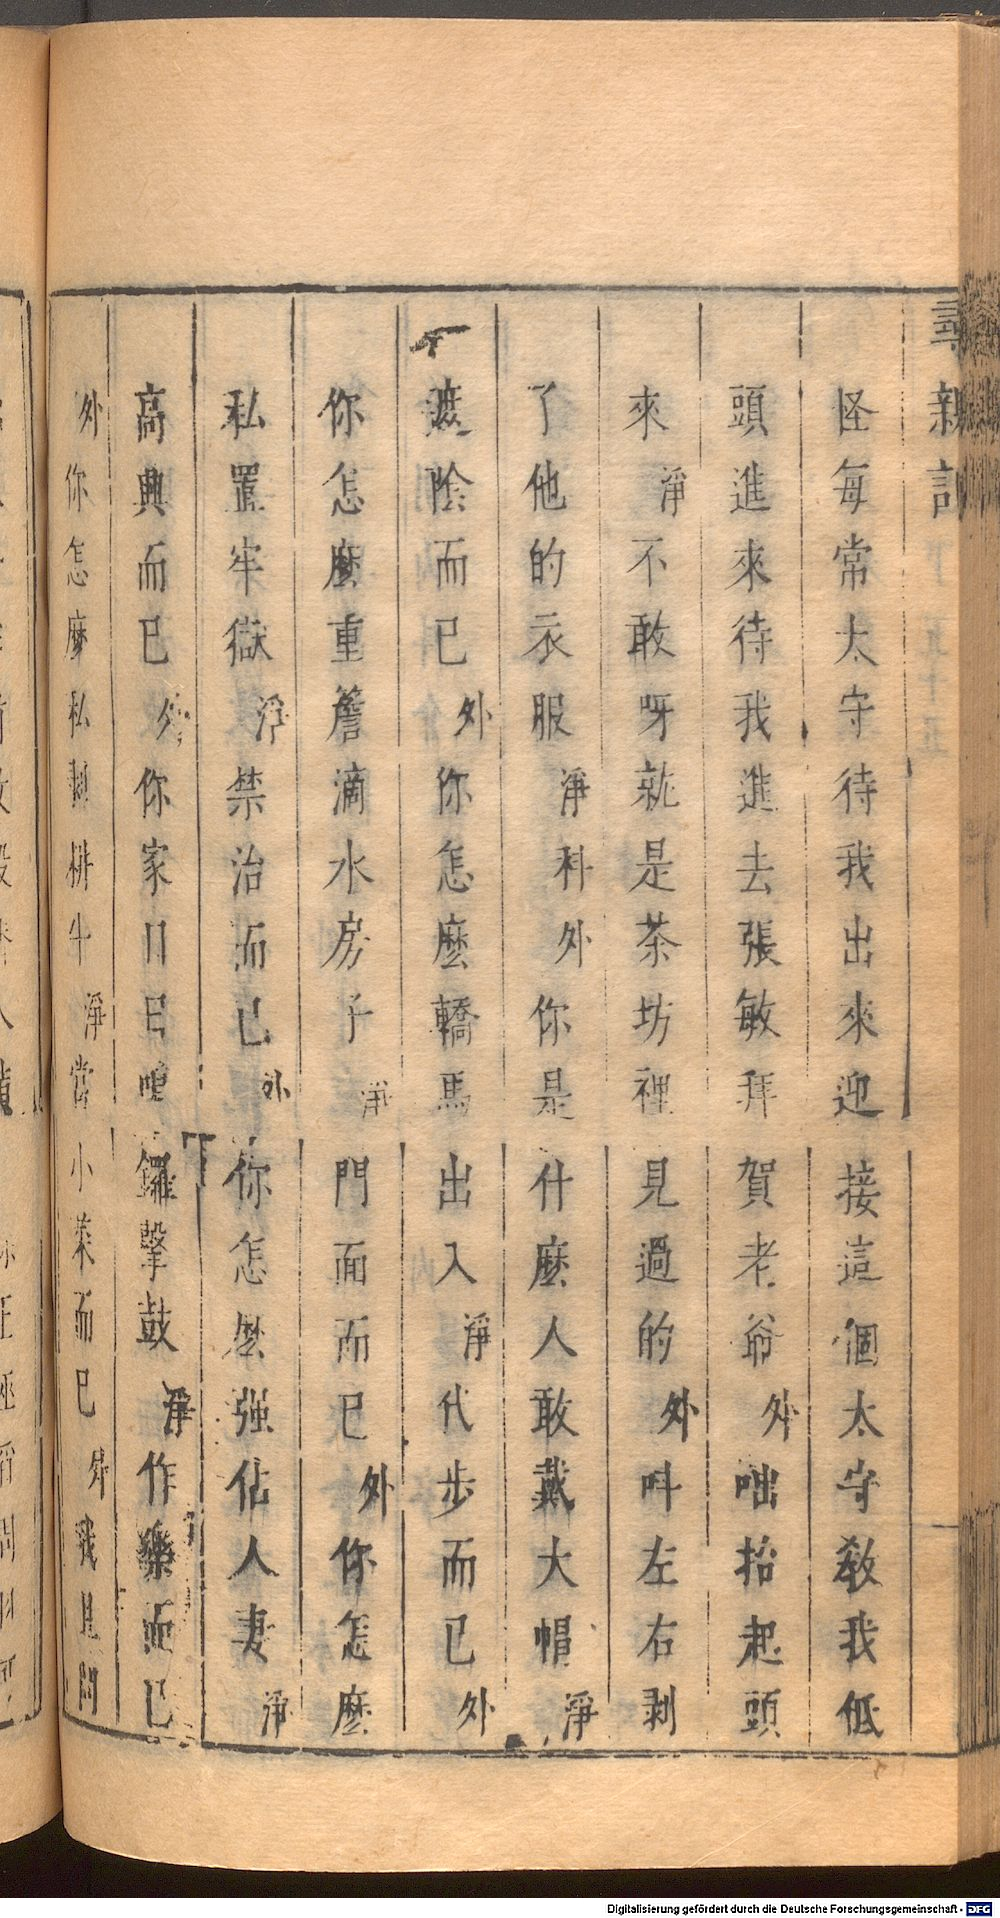 尋親記
怪每常太守待我出來迎接這個太守教我低
頭進來待我進去張敏拜賀老爺外咄抬起頭
來淨不敢呀就是茶坊裡見過的外叫左右剥
了他的衣服淨科外你是什麽人敢戴大帽淨
遮陰而已外你怎麽轎馬出入淨代步而已外
你怎麽重簷滴水房子淨門面而已外你怎麽
私置牢獄淨禁治而已外你怎麽强佔人妻淨
高興而已外你家日日鳴鑼擊鼓淨作樂而已
外你怎摩私耕牛淨當小菜而已外我且問
Digitalisierung gefördert durch die Deutsche Forschungsgemeinschaft - DFG